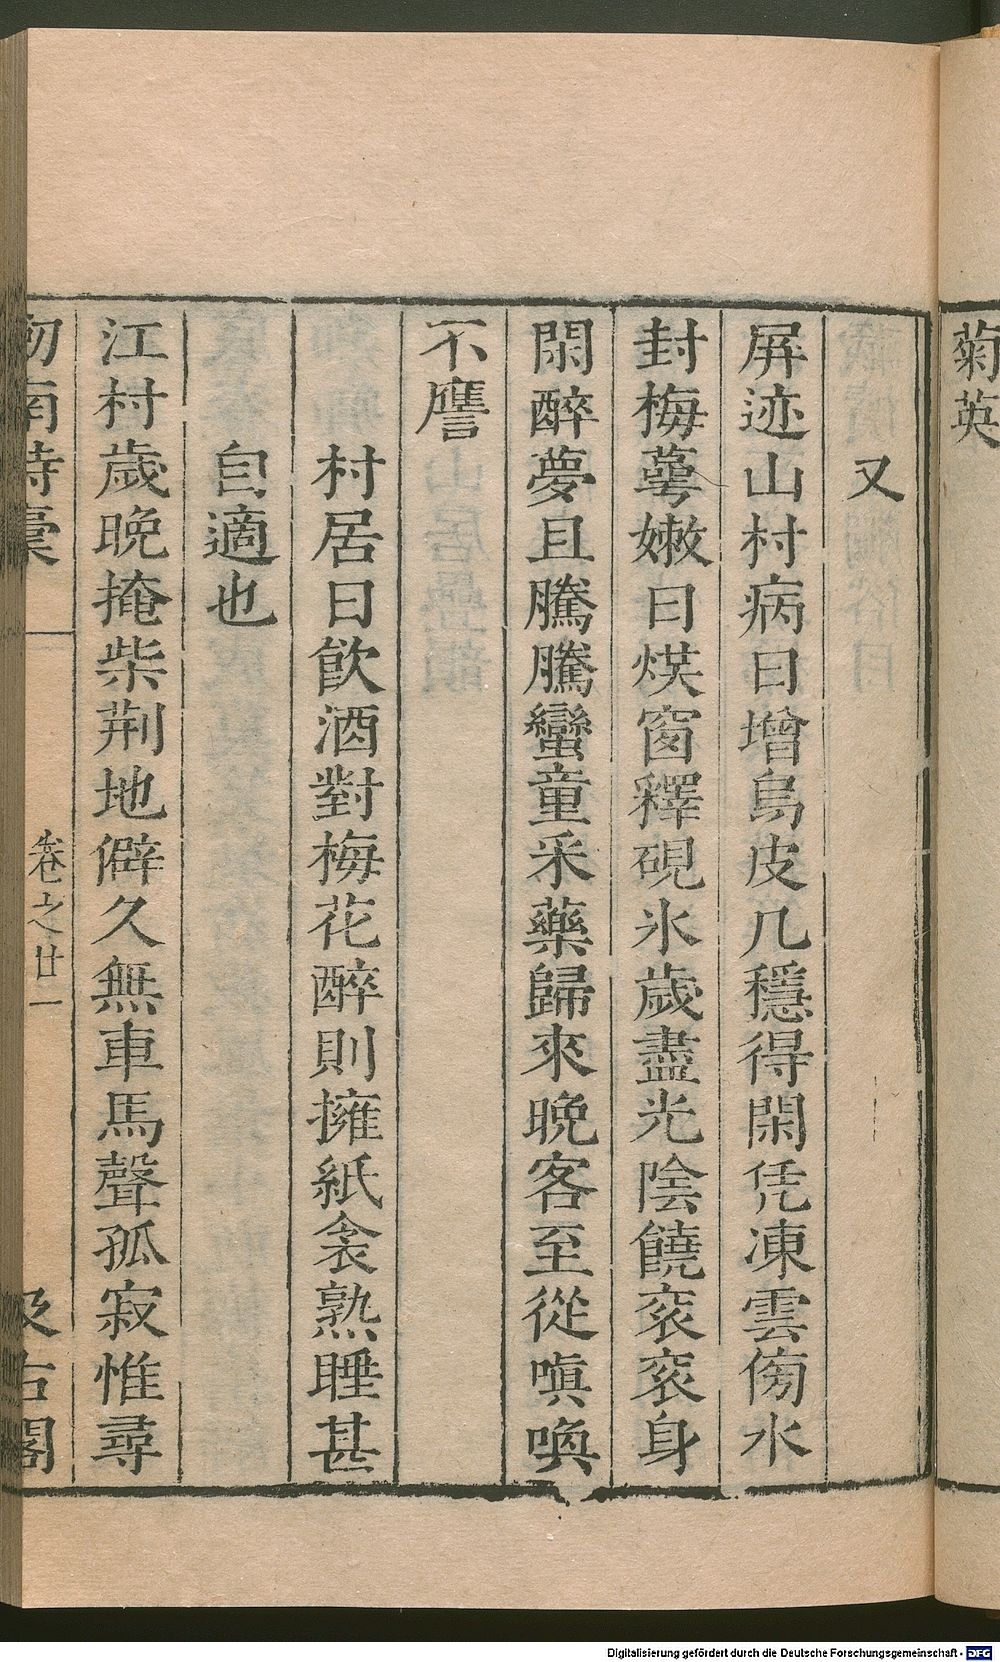 菊英
又
屏迹山村病日增烏皮几穩得閑凭凍雲傍水
封梅萼嫩日烘窗釋硯氷歲盡光陰饒衮衮身
閑醉夢且騰騰蠻童采藥歸來晚客至從嗔喚
不譍
村居日飲酒對梅花醉則擁紙衾熟睡甚
自適也
江村歲晚掩柴荆地僻久無車馬聲孤寂惟尋
劒南詩稾
卷之廿一
汲古閣
Digitalisierung gefördert durch die Deutsche Forschungsgemeinschaft - DFG